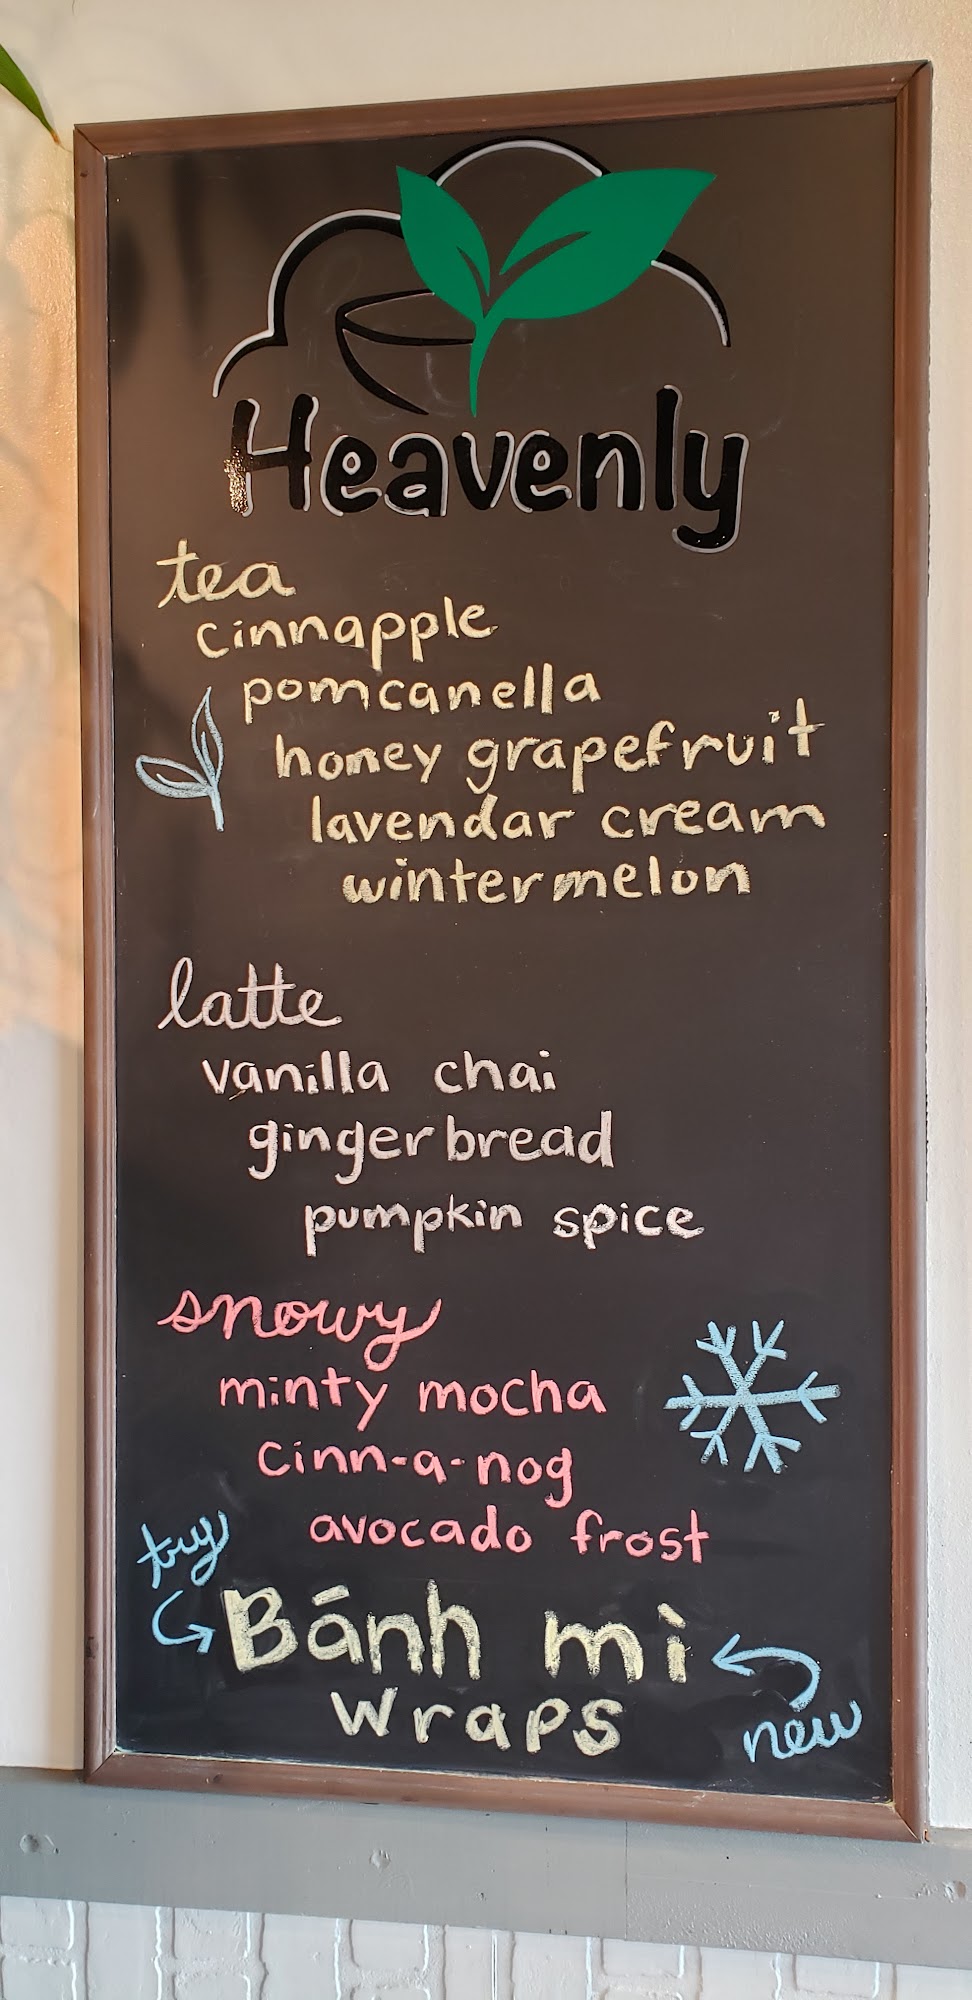 Heavenly
tea
cinnapple
pomcanella
honey grapefruit
lavendar cream
wintermelon
latte
vanilla chai
gingerbread
pumpkin spice
snowy
minty mocha
cinn-a-nog
avocado frost
try
Bánh mì
wraps
new